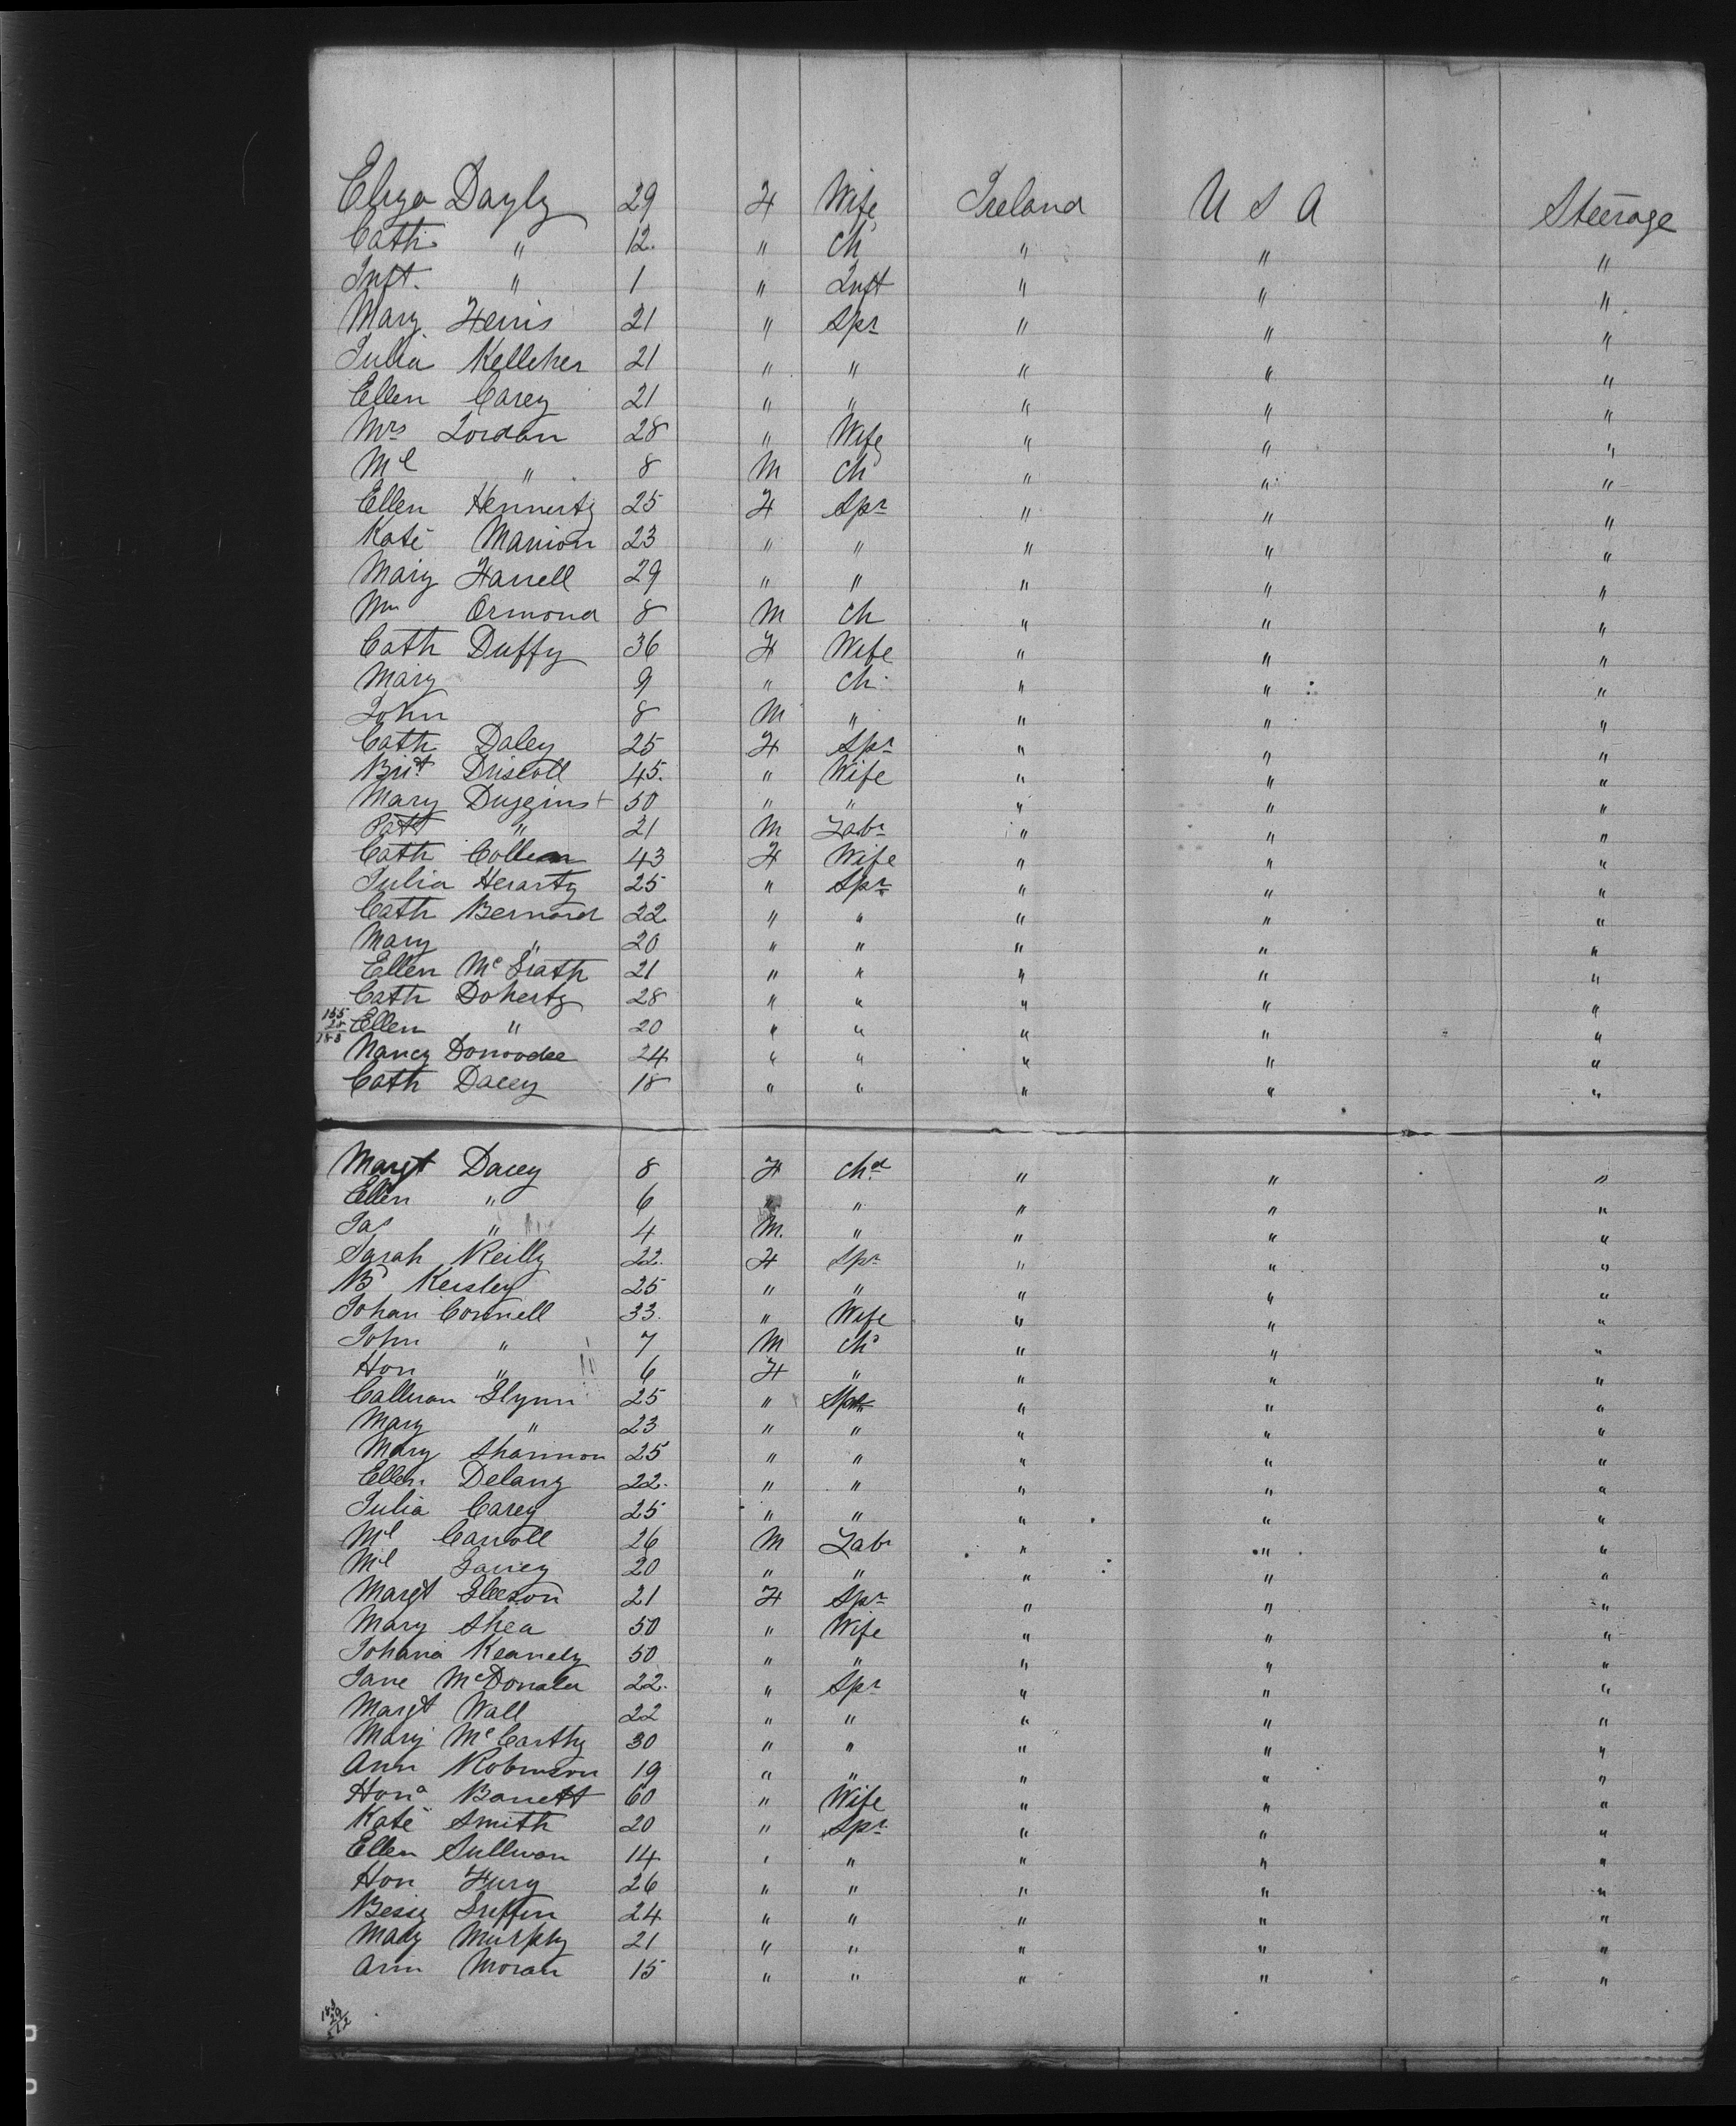 Eliza Dayly 29 F Wife Ireland U S A Steerage
Cath " 12 " Ch " " "
Inft. " 1 " Inft " " "
Mary Ferris 21 " Spr " " "
Julia Kelleher 21 " " " " "
Ellen Carey 21 " " " " "
Mrs Jordan 28 " Wife " " "
Ml " 8 M Ch " " "
Ellen Hennerty 25 F Spr " " "
Kate Manion 23 " " " " "
Mary Farrell 29 " " " " "
Wm Ormond 8 M Ch " " "
Cath Duffy 36 F Wife " " "
Mary 9 " Ch " " "
John 8 M " " " "
Cath Daley 25 F Spr " " "
Brit Driscoll 45. " Wife " " "
Mary Duggins 50 " " " " "
Patt " 21 M Labr " " "
Cath 43 F Wife " " "
Julia Herarty 25 " Spr " " "
Cath Bernard 22 " " " " "
Mary " 20 " " " " "
Ellen Mc Grath 21 " " " " "
Cath Doherty 28 " " " " "
155
28
183
Ellen " 20 " " " " "
Nancy 24 " " " " "
Cath Dacey 18 " " " " "
Margt Dacey 8 F Chd " " "
Ellen " 6 " " " " "
Jas " 4 M. " " " "
Sarah Reilly 22. F Spr " " "
B Kersley 25 " " " " "
Johan Connell 33. " Wife " " "
John " 7 M Chd " " "
Hon " 6 F " " " "
Glynn 25 " Spr " " "
Mary " 23 " " " " "
Mary Shannon 25 " " " " "
Ellen Delany 22. " " " " "
Julia Carey 25 " " " " "
Ml Carroll 26 M Labr " " "
Ml 20 " " " " "
Margt Gleeson 21 F Spr " " "
Mary Shea 50 " Wife " " "
Johana Keanely 50 " " " " "
Jane McDonald 22. " Spr " " "
Margt Wall 22 " " " " "
Mary Mc Carthy 30 " " " " "
Ann Robinson 19 " " " " "
Hona Barrett 60 " Wife " " "
Kate Smith 20 " Spr " " "
Ellen Sullivan 14 " " " " "
Hon Fury 26 " " " " "
Bessy Griffin 24 " " " " "
Mary Murphy 21 " " " " "
Ann Moran 15 " " " " "